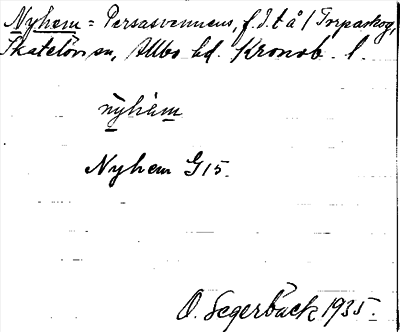 Nyhem = Persasvennens, f.d. t å / Torpaskog,
Skatelövs sn, Allbo hd. Kronob. l.
nỳhèm
Nyhem G15.
O. Segerbäck 1935.